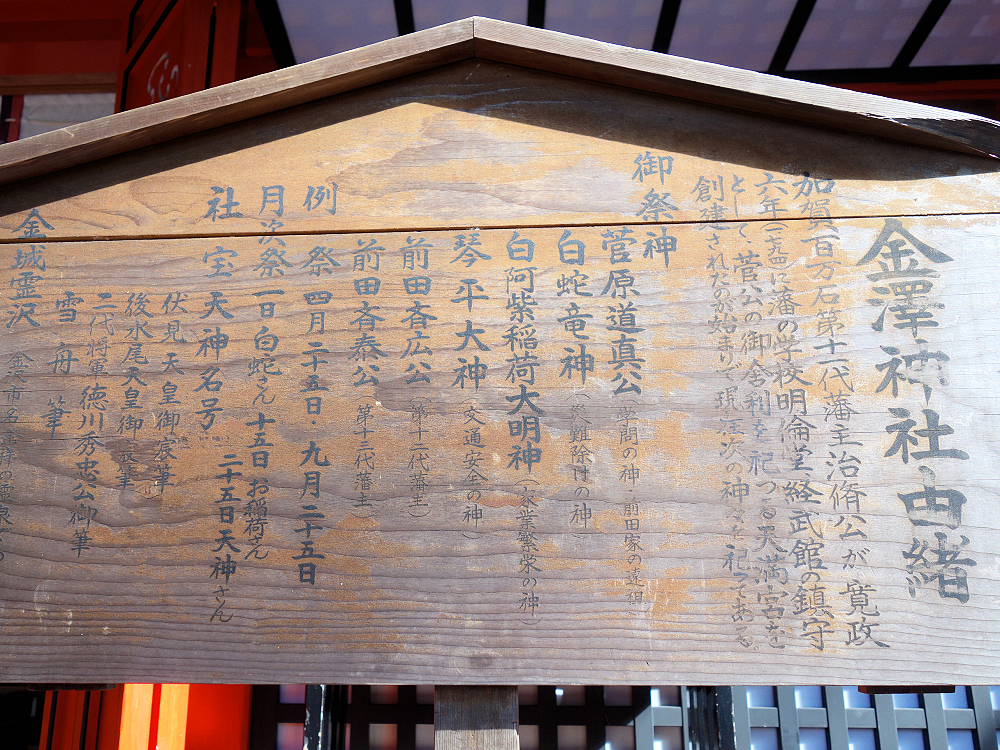 金澤神社由緒
加賀百万石第十一代藩主治脩公が寛政
六年(一七九四)に藩の学校明倫堂経武館の鎮守
として、菅公の御舎利を祀つる天満宮を
創建されたのが始まりで現在次の神々を祀てある。
御祭神
菅原道真公(学問の神・前田家の遠祖)
白蛇竜神(災難除けの神)
白阿紫稲荷大明神(家業繁栄の神)
琴平大神(交通安全の神)
前田斉広公(第十二代藩主)
前田斉泰公(第十三代藩主)
例祭 四月二十五日・九月二十五日
月次祭 一日白蛇さん 十五日お稲荷さん
二十五日天神さん
社宝 天神名号
伏見天皇御宸筆
後水尾天皇御宸筆
二代将軍徳川秀忠公御筆
雪舟筆
金城霊沢